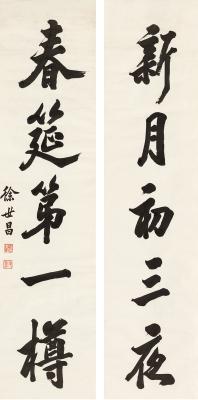 新月初三夜
春筵第一樽
徐世昌